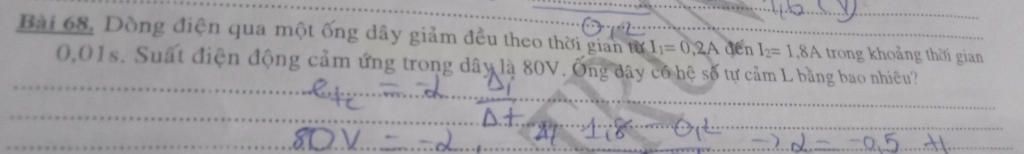 1,6 (V)
0,2
Bài 68. Dòng điện qua một ống dây giảm đều theo thời gian từ I₁= 0,2A đến I₂= 1,8A trong khoảng thời gian
0,01s. Suất điện động cảm ứng trong dây là 80V. Ống dây có hệ số tự cảm L bằng bao nhiêu?
etc = -L Δi / Δt
80V = -L . 1,8 - 0,2 → L = -0,5 H